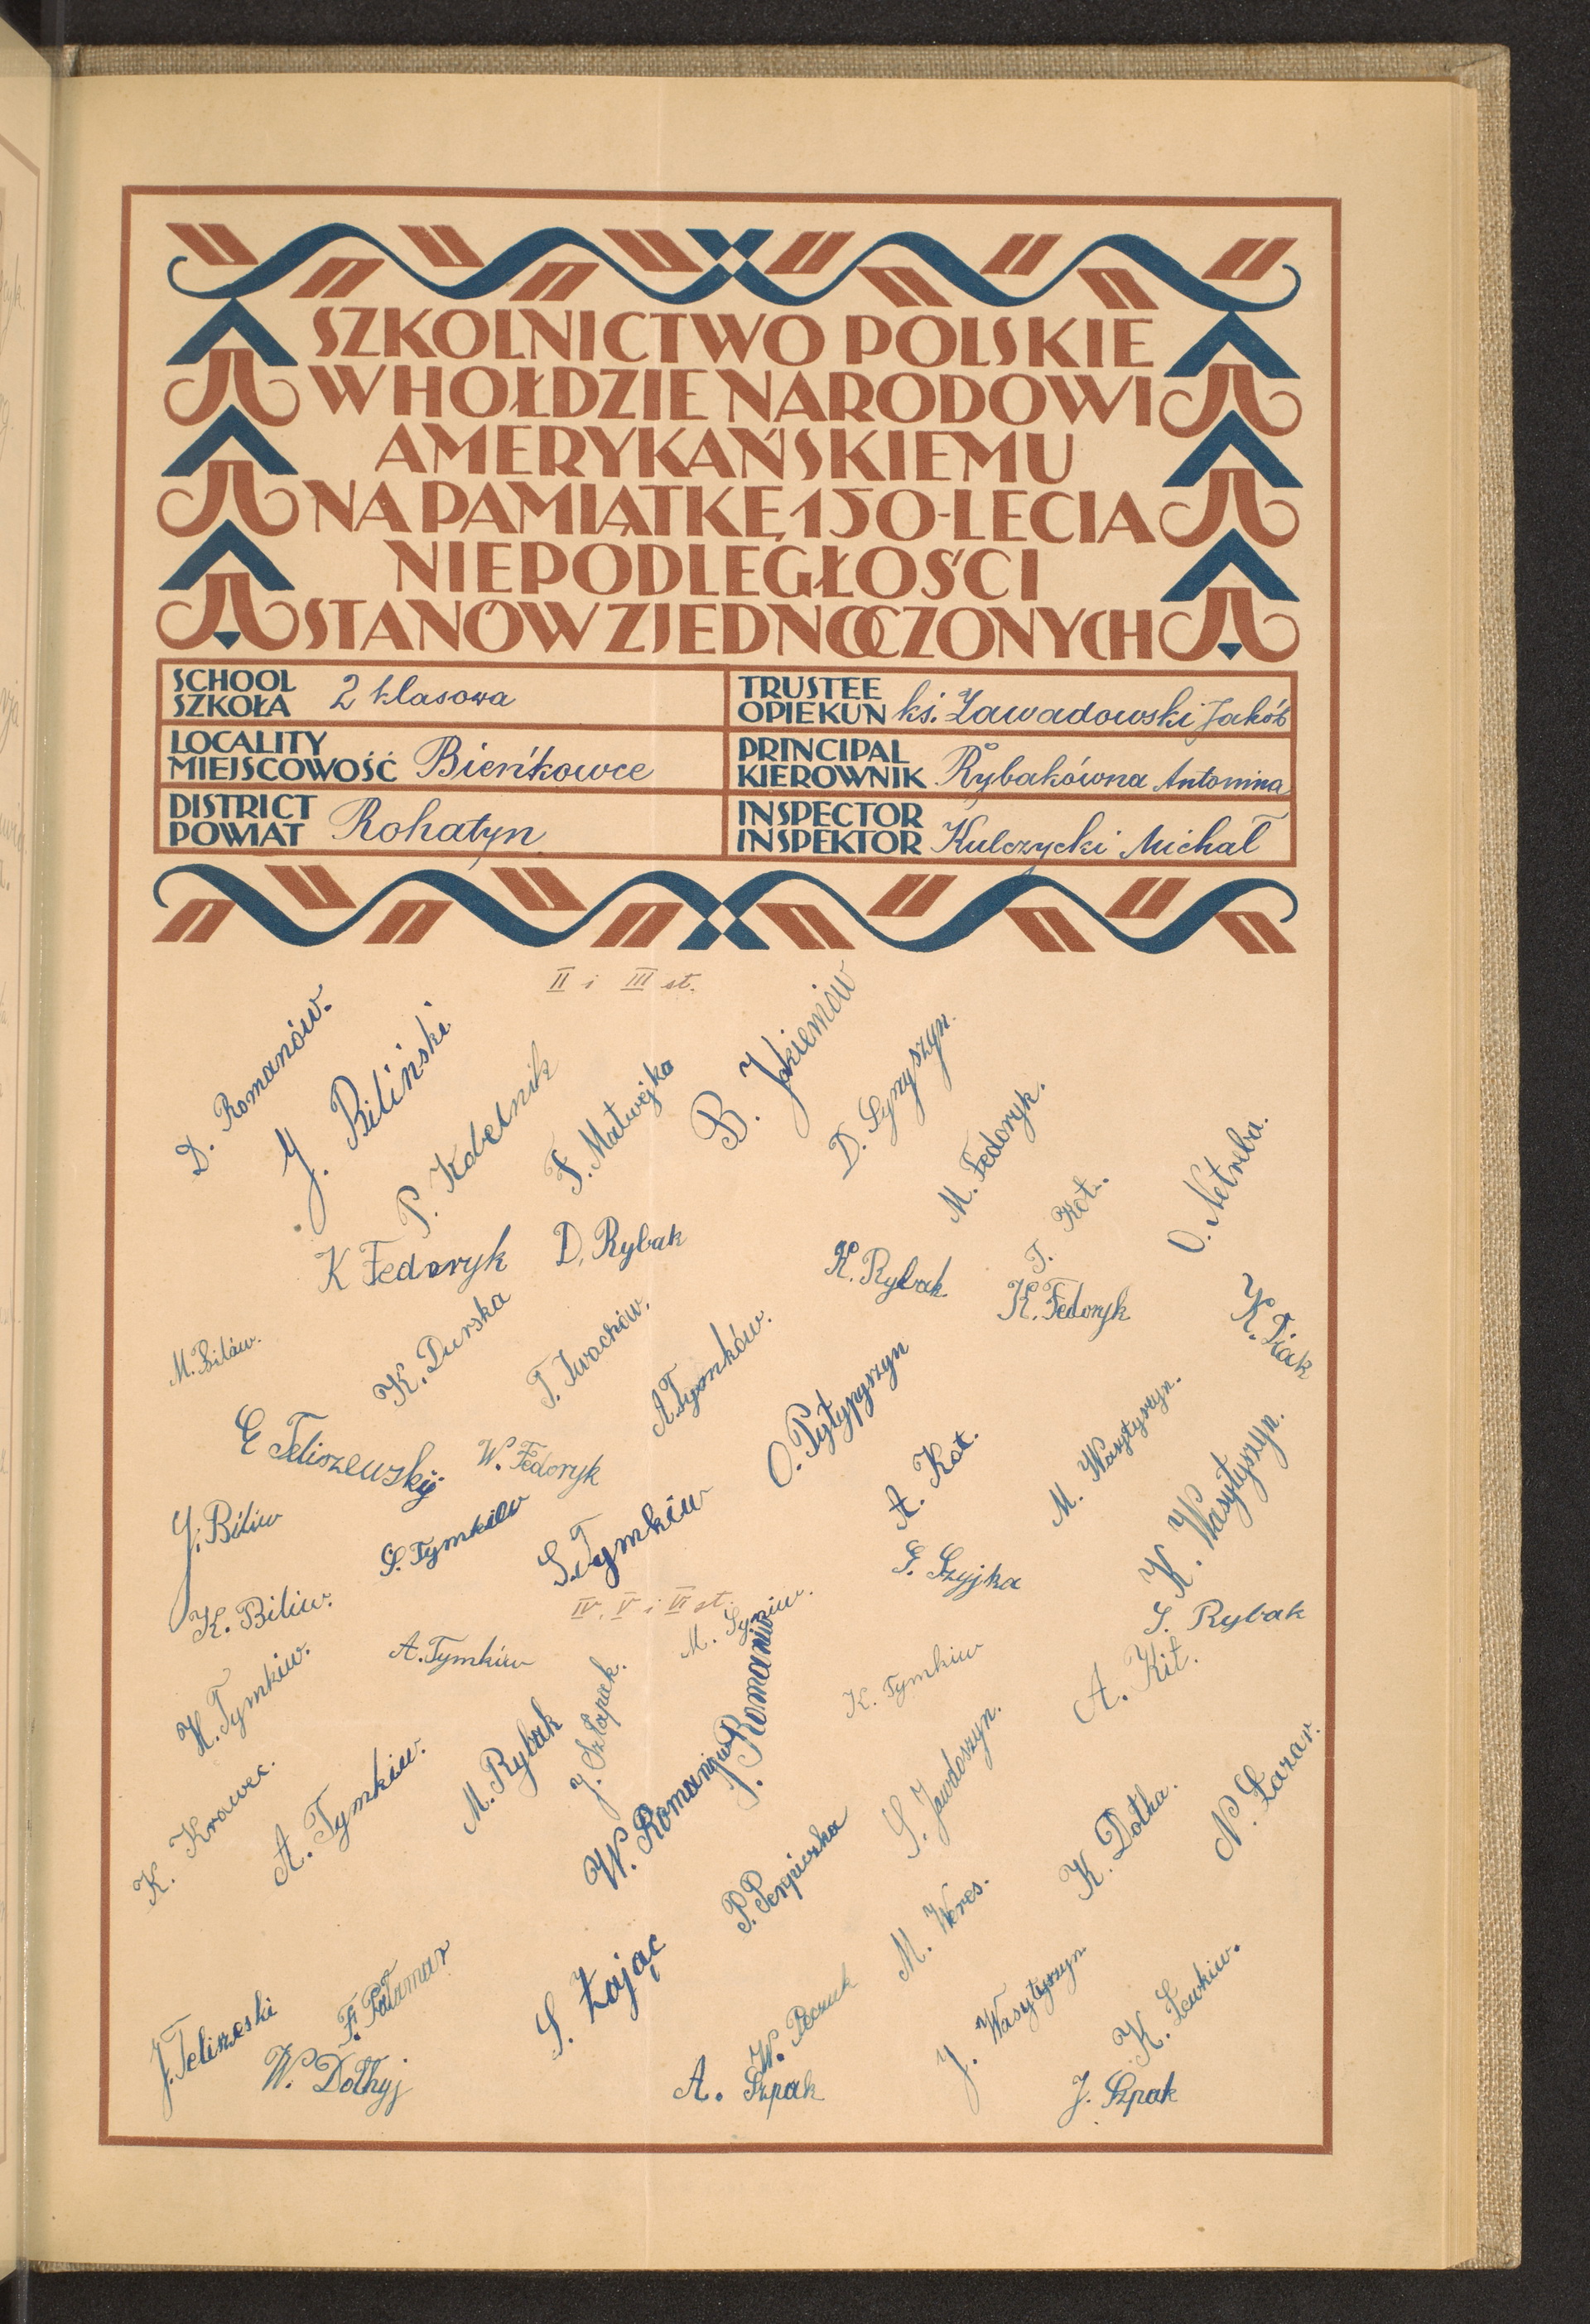 SZKOLNICTWO POLSKIE
W HOŁDZIE NARODOWI
AMERYKAŃSKIEMU
NA PAMIĄTKĘ 150-LECIA
NIEPODLEGŁOŚCI
STANÓW ZJEDNOCZONYCH
SCHOOL
SZKOŁA 2 klasowa
TRUSTEE
OPIEKUN ks. Zawadowski Jakób
LOCALITY
MIEJSCOWOŚĆ Bieńkowce
PRINCIPAL
KIEROWNIK Rybakówna Antonina
DISTRICT
POWIAT Rohatyn
INSPECTOR
INSPEKTOR Kulczycki Michał
II i III st.
D. Romanów.
J. Biliński
P. Kobelnik
F. Matwejko
B. Jakiemiów
D. Łyryszyn.
M. Fedoryk.
T. Kot.
O. Netreba.
K Fedoryk
D. Rybak
K. Rybak
K. Fedoryk
K. Diak
M. Bilów.
K. Durska
T. Iwachów.
A. Tymków.
O. Pyłypyszyn
A. Kot.
M. Wasyłyszyn.
K. Wasyłyszyn.
E Teliszewskyj
W. Fedoryk
J. Biliw
S. Tymkiw
S. Tymkiw
G. Szyjka
S. Rybak
K. Biliw.
IV, V i VI st.
A. Tymkiw
K. Tymkiw
A. Kit.
H. Tymkiw.
J. Szłapak.
S. Romaniw
K. Krawec.
A. Tymkiw.
M. Rybak
W. Romaniw
S. Jawdoszyn.
K. Dołha.
N. Łazar.
P. Perepiczka
M. Weres.
J. Teliszeski
F. Pałamar
W. Dołhyj
S. Zając
A. Szpak
J. Wasyłyszyn
K. Lewkiw.
J. Szpak